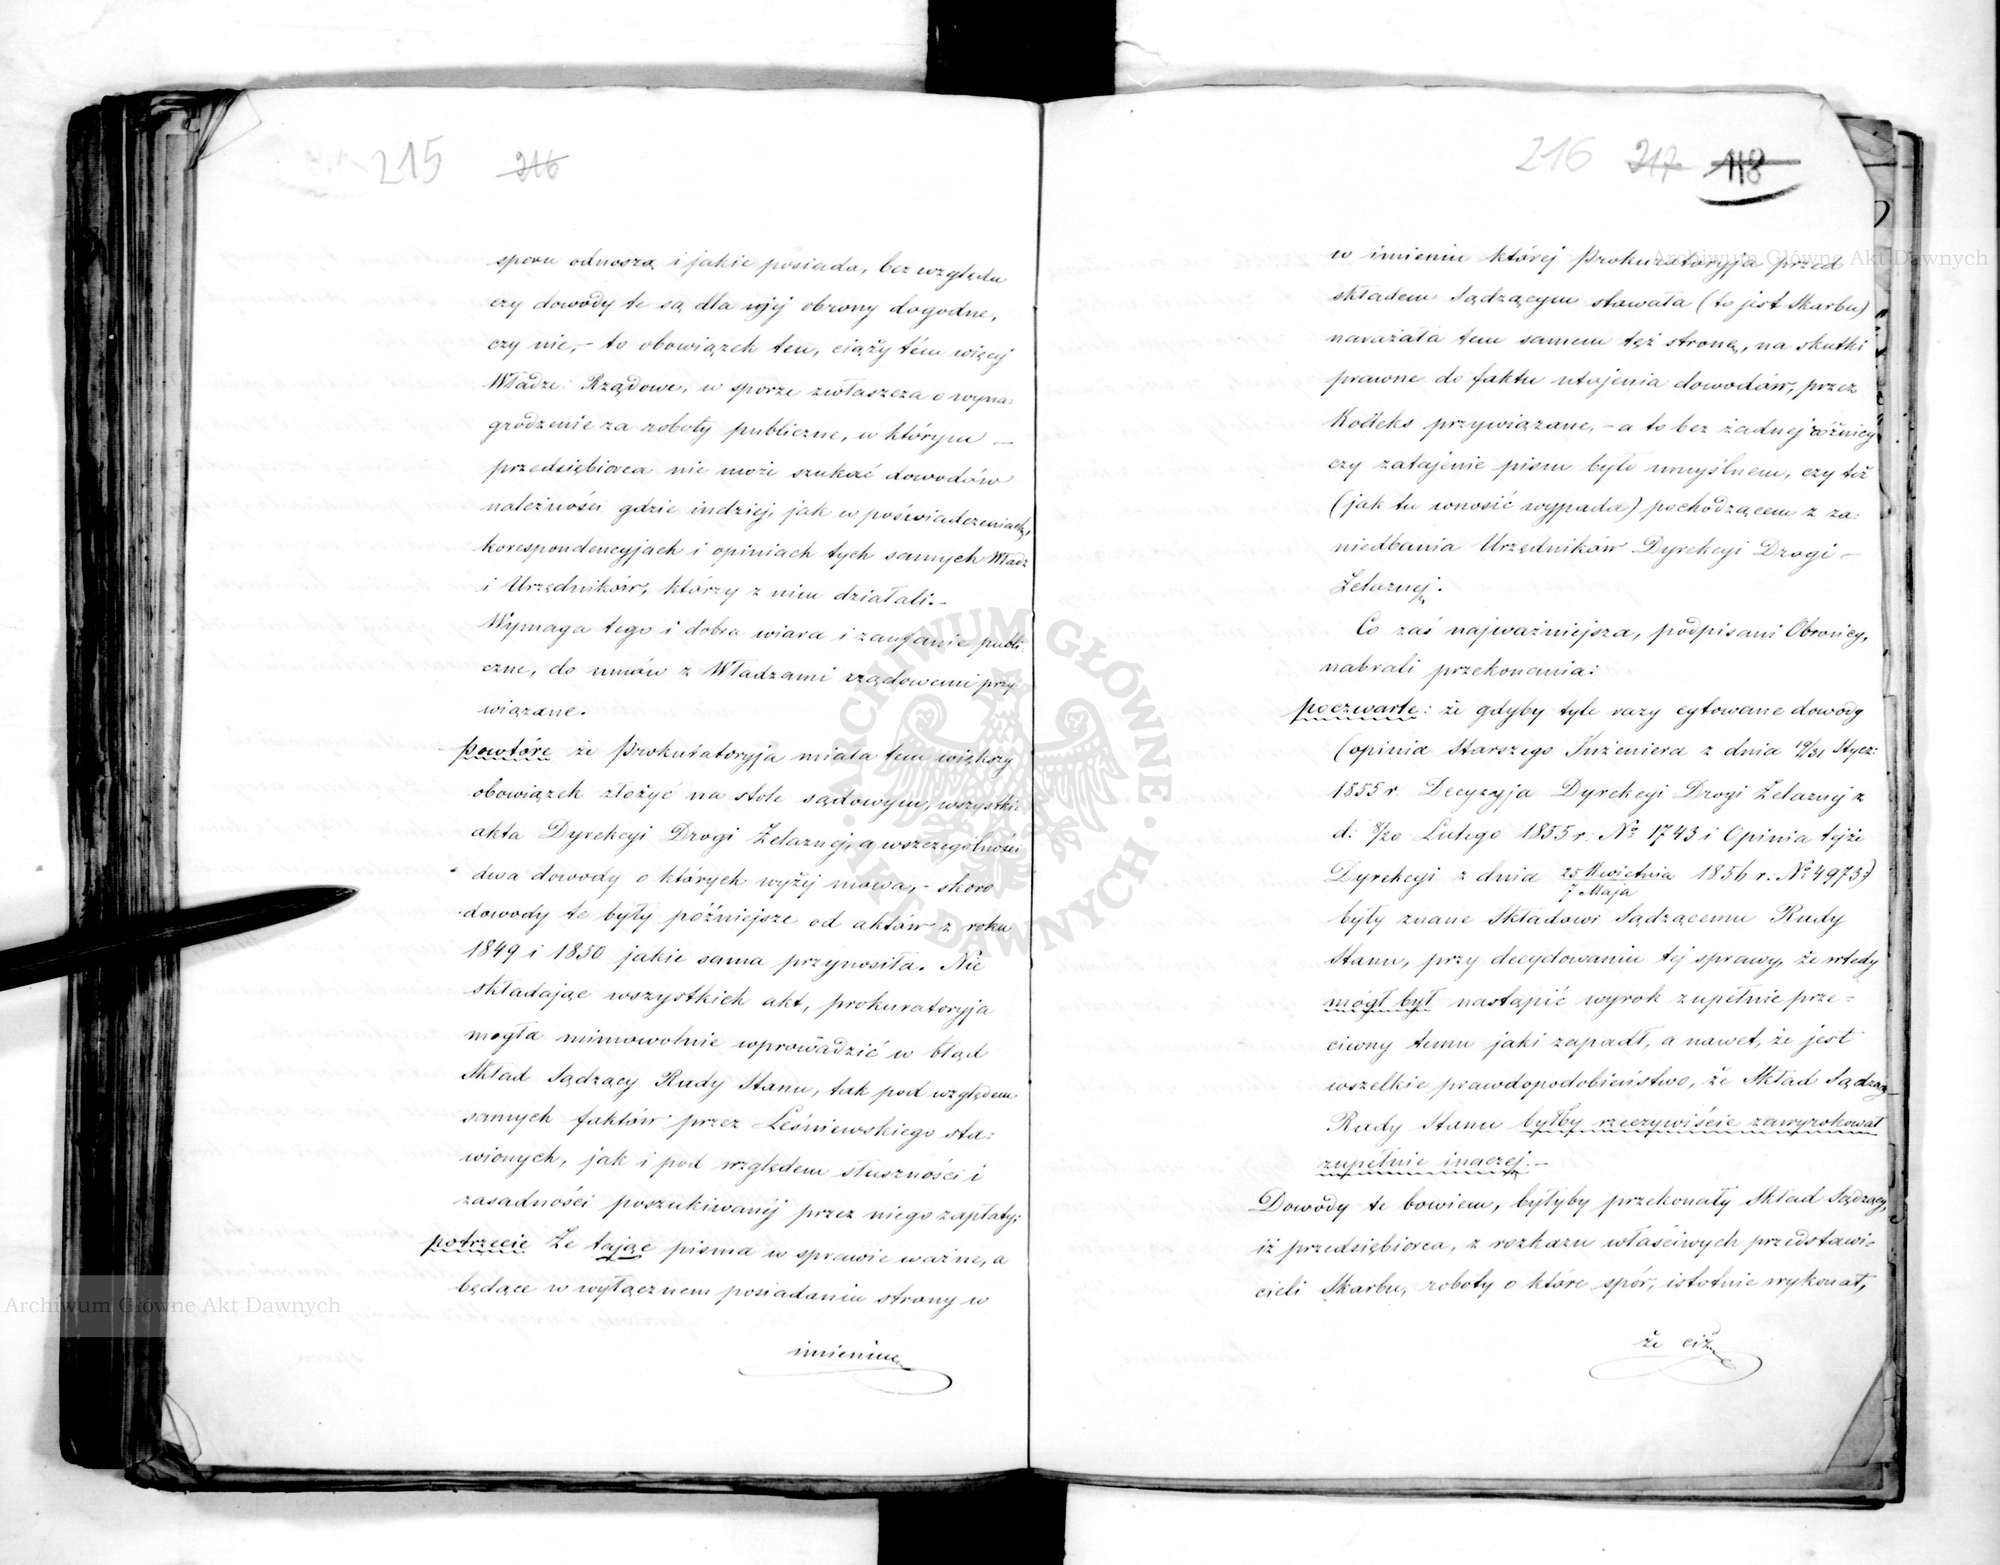 215 216
sporu odnoszą i jakie posiada, bez względu
czy dowody te są dla jéj obrony dogodne,
czy nie, – to obowiązek ten, ciąży tém więcej
Władze Rządowe, w sporze zwłaszcza o wyna:
grodzenie za roboty publiczne, w którym –
przedsiębiorca nie może szukać dowodów
należności gdzie indziej, jak w poświadczeniach,
korespondencyjach i opiniach tych samych Władz
i Urzędników, którzy z nim działali. –
Wymaga tego i dobra wiara i zaufanie publi:
czne, do umów z Władzami rządowemi przy:
wiązane.
powtóre że Prokuratoryja miała tem większy
obowiązek złożyć na stole sądowym, wszystkie
akta Dyrekcyi Drogi Żelaznej, a wszczególności
dwa dowody o których wyżéj mowa, – skoro
dowody te były późniejsze od aktów z roku
1849 i 1850 jakie sama przynosiła. Nie
składając wszystkich akt, prokuratoryja
mogła mimowolnie wprowadzić w błąd
Skład Sądzący Rady Stanu, tak pod względem
samych faktów przez Leśniewskiego sta:
wionych, jak i pod względem słuszności i
zasadności poszukiwanéj przez niego zapłaty;
potrzecie Że tając pisma w sprawie ważne, a
będące w wyłącznem posiadaniu strony w
imieniu
216 217 118
w imieniu któréj Prokuratoryja przed
składem Sądzącym stawała (to jest Skarbu)
narażała tem samem tęż stronę, na skutki
prawne do faktu utajenia dowodów, przez
Kodeks przywiązane, – a to bez żadnej różnicy
czy zatajenie pism było umyślnem, czy też
(jak tu wnosić wypada) pochodzącem z za:
niedbania Urzędników Dyrekcyi Drogi –
Żelaznej.
Co zaś najważniejsza, podpisani Obrońcy,
nabrali przekonania:
poczwarte: że gdyby tyle razy cytowane dowody
(opinia Starszego Inżeniera z dnia 19/31 Stycz:
1855 r Decyzyja Dyrekcyi Drogi Żelaznej z
d: 8/20 Lutego 1855 r. No 1743 i Opinia tejże
Dyrekcyi z dnia 25 Kwietnia / 7 Maja 1856 r: No 4973)
były znane Składowi Sądzącemu Rady
Stanu, przy decydowaniu tej sprawy, że wtedy
mógł był nastąpić wyrok zupełnie prze=
ciwny temu jaki zapadł, a nawet, że jest
wszelkie prawdopodobieństwo, że Skład Sądzący
Rady Stanu byłby rzeczywiście zawyrokował
zupełnie inaczej. –
Dowody te bowiem, byłyby przekonały Skład Sądzący,
iż przedsiębiorca, z rozkazu właściwych przedstawi=
cieli Skarbu, roboty o które spór, istotnie wykonał,
że ciż
Archiwum Główne Akt Dawnych
Archiwum Główne Akt Dawnych
ARCHIWUM GŁÓWNE AKT DAWNYCH